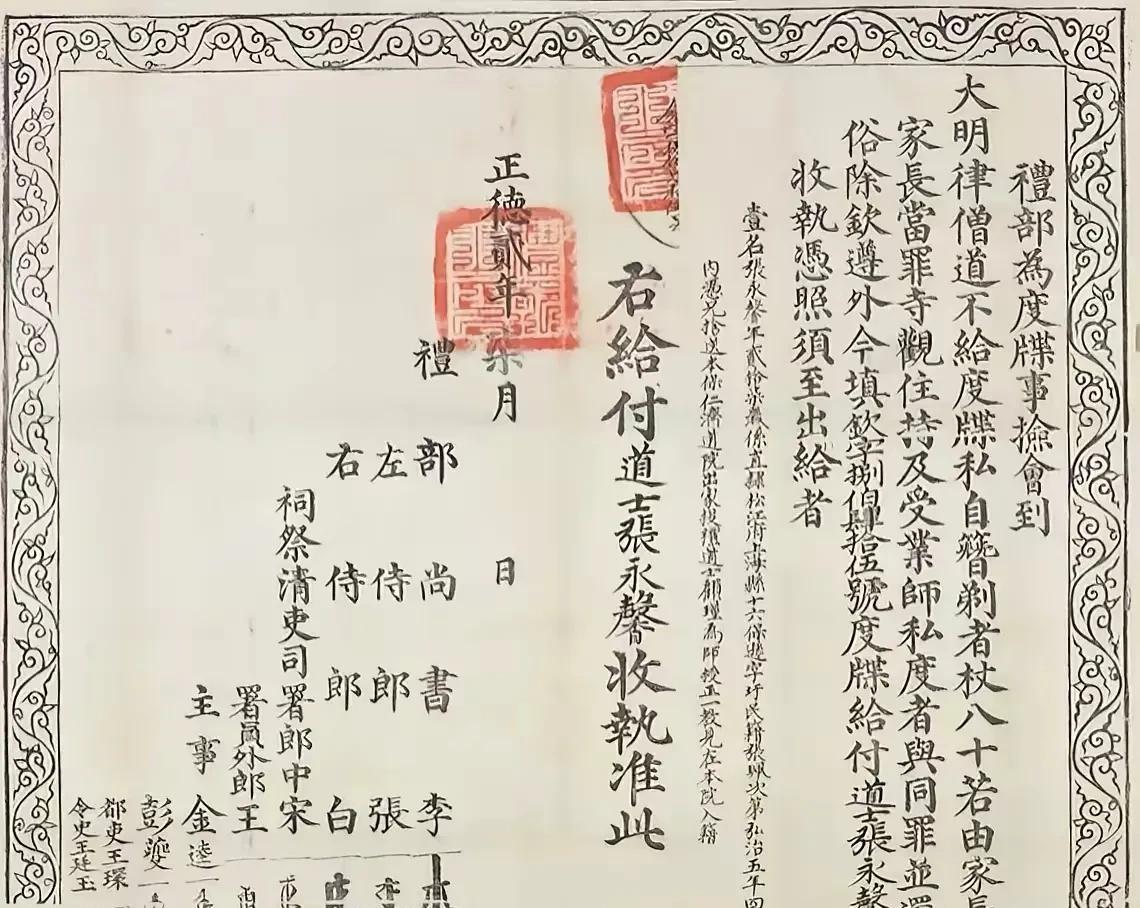 禮部為度牒事撿會到
大明律僧道不給度牒私自簪剃者杖八十若由家長
家長當罪寺觀住持及受業師私度者與同罪並還
俗除欽遵外今填欽字捌伯肆拾伍號度牒給付道士張永馨
收執憑照須至出給者
壹名張永馨年貳拾柒歲係直隸松江府上海縣十六保遐字圩民籍張興次弟弘治五年四
內憑兄捨送本保仁濟道院出家投禮道士顧瑾為師授正一教見在本院入籍
右給付道士張永馨收執准此
正德貳年柒月 日
禮部尚書李
左侍郎張
右侍郎白
祠祭清吏司署郎中宋
署員外郎王
主事金逵
彭夔
都吏王琛
令史王廷玉